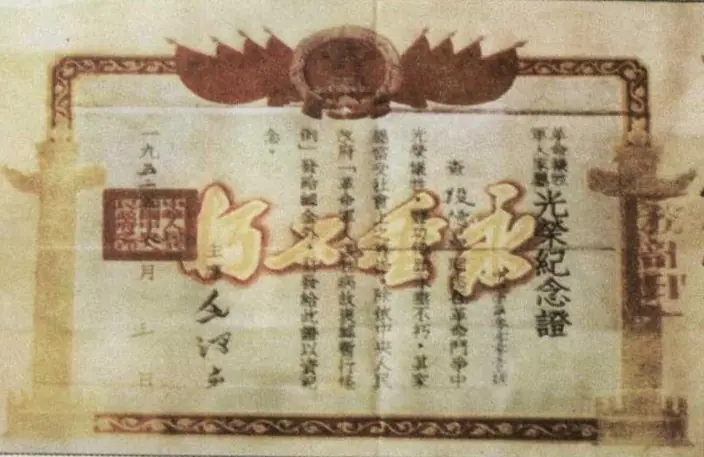 革命犧牲
軍人家屬
光榮紀念證
查段德昌同志在革命鬥爭中
光榮犧牲,豐功偉績永垂不朽,其家
屬當受社會上之尊崇。除依中央人民
政府「革命軍人犧牲病故褒卹暫行條
例」發給卹金外,並發給此證以資紀
念。
主席 毛澤東
一九五二年 月 日
永垂不朽